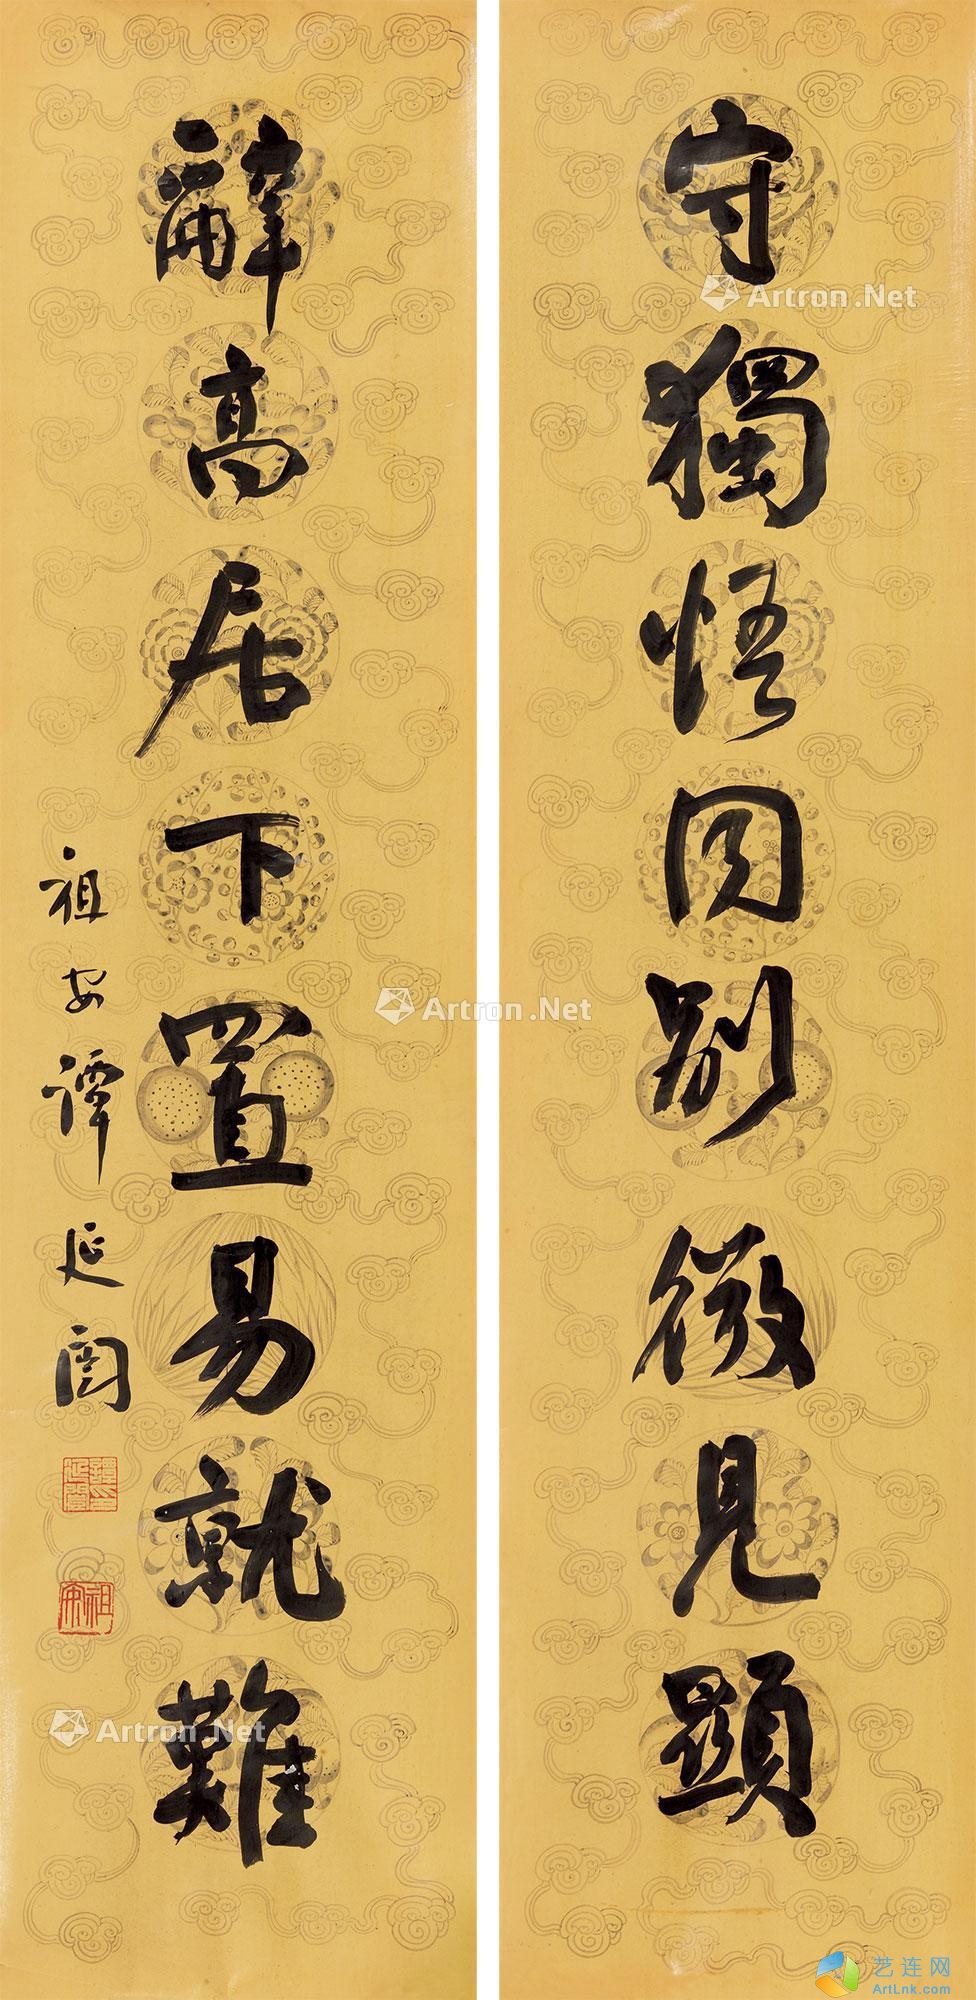 守獨悟同別微見顯
辭高居下置易就難
祖安譚延闓
譚延闓印
祖安
Artron.Net
Artron.Net
Artron.Net
艺连网
ArtLnk.com